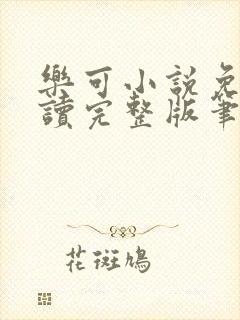 樂可小說免
讀完整版筆
花斑鳩